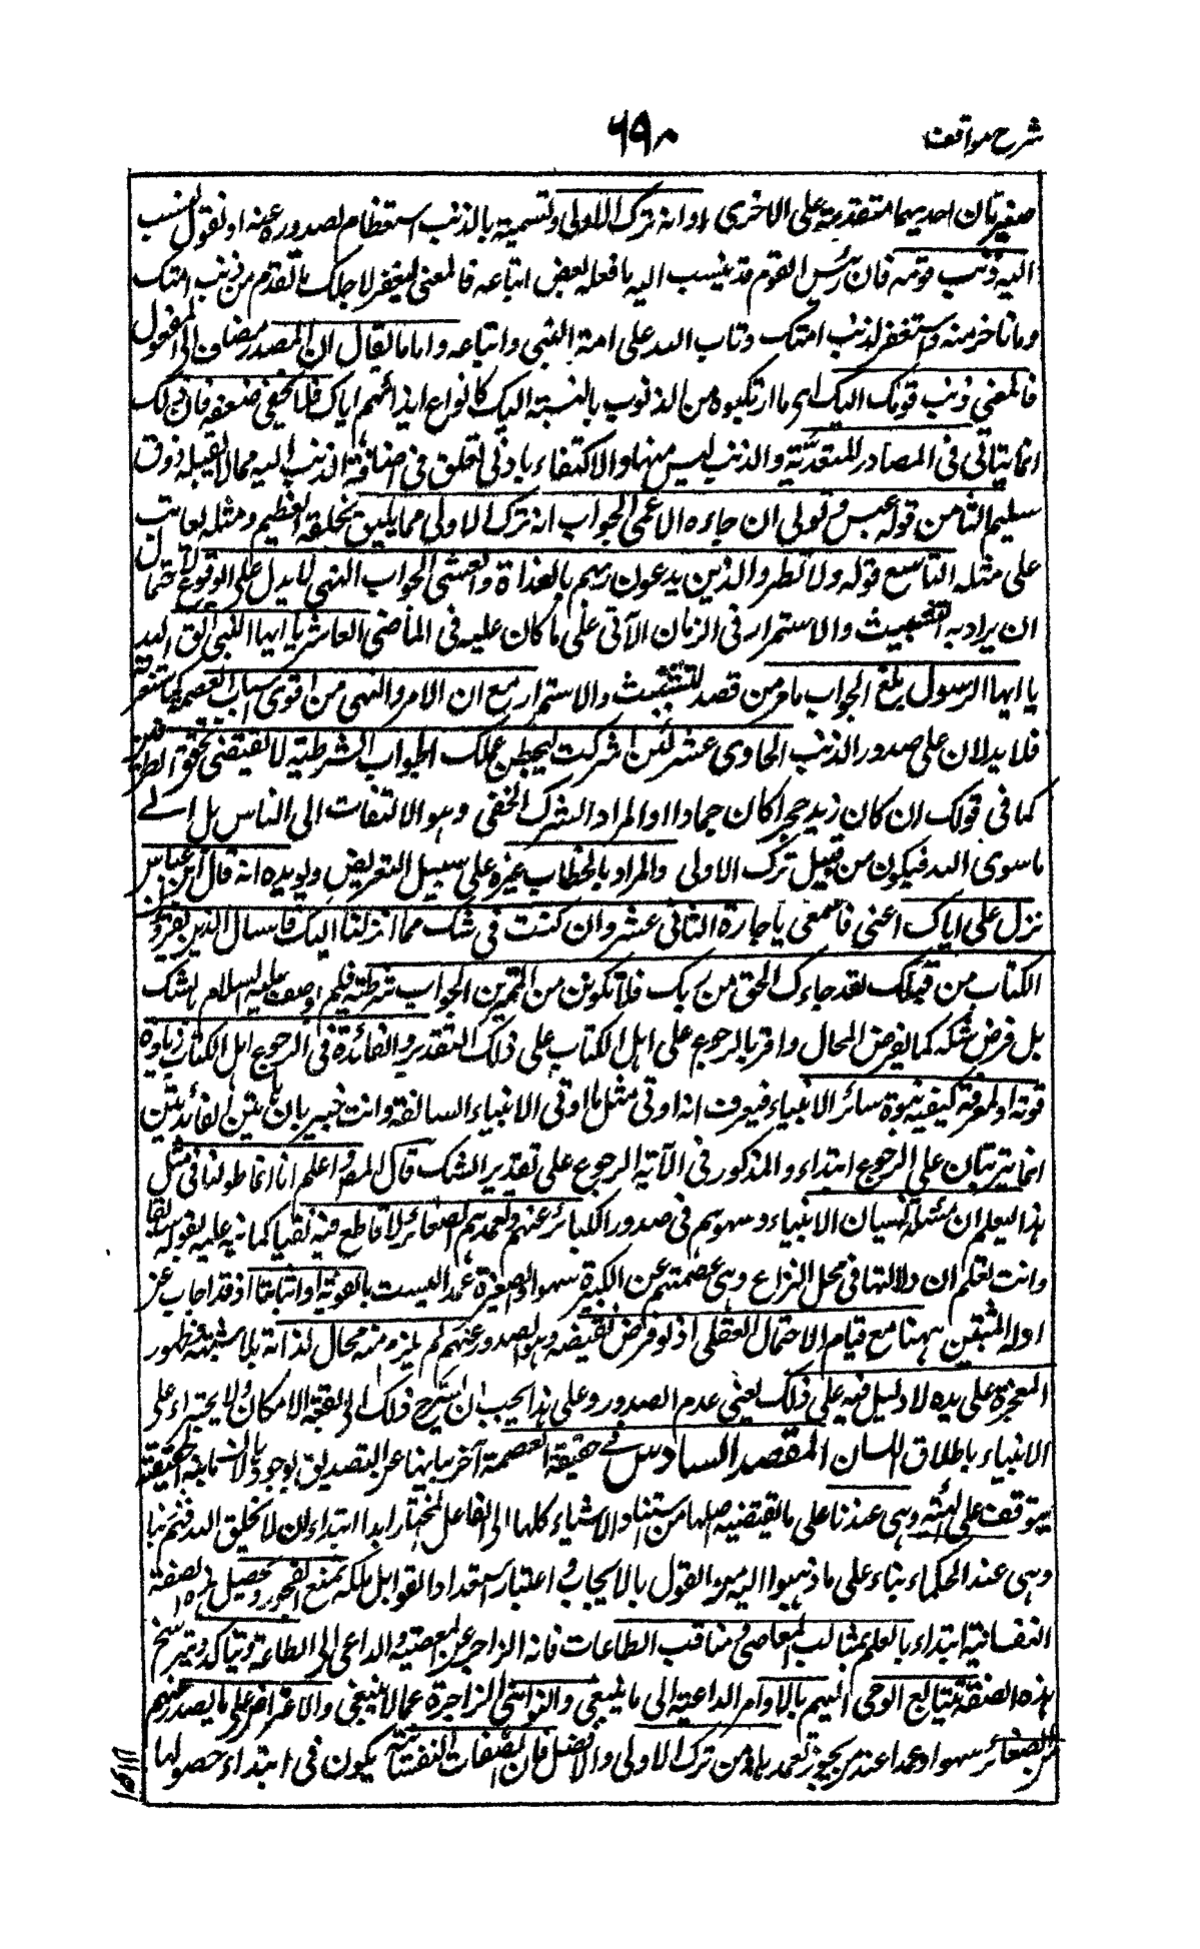 شرح مواقف
۶۹۸
صغيرتان احديهما متقدمة على الاخرى او انه ترك الاولى وتسميته بالذنب استعظام لصدوره عنه او نقول نسب
اليه ذنب قومه فان رئس القوم قد ينسب اليه ما فعله بعض اتباعه فالمعنى ليغفر لاجلك ما تقدم من ذنب امتك
وما تاخر منه واستغفر لذنب امتك وتاب الله على امة النبى واتباعه واما ما يقال ان المصدر مضاف الى المفعول
فالمعنى ذنب قومك اليك اى ما ارتكبوه من الذنوب بالنسبة اليك كانواع ايذائهم اياك فلا يخفى ضعفه فان ذلك
انما يتاتى فى المصادر المتعدية والذنب ليس منها والاكتفاء بادنى تعلق فى اضافة الذنب اليه مما لا يقبله ذوق
سليم الثامن قوله عبس وتولى ان جاءه الاعمى الجواب انه ترك الاولى مما يليق بخلقه العظيم ومثله يعاتب
على مثله التاسع قوله ولا تطرد الذين يدعون ربهم بالغداة والعشى الجواب النهى لا يدل على الوقوع لاحتمال
ان يراد به التثبيت والاستمرار فى الزمان الآتى على ما كان عليه فى الماضى العاشر يا ايها النبى اتق الله
يا ايها الرسول بلغ الجواب ما مر من قصد التثبيت والاستمرار مع ان الامر والنهى من اقوى اسباب العصمة كما ستعرفه
فلا يدلان على صدور الذنب الحادى عشر لئن اشركت ليحبطن عملك الجواب الشرطية لا تقتضى تحقق الطرفين
كما فى قولك ان كان زيد حجرا كان جمادا او المراد الشرك الخفى وهو الالتفات الى الناس بل الے
ما سوى الله فيكون من قبيل ترك الاولى والمراد بالخطاب غيره على سبيل التعريض ويويده انه قال ابن عباس
نزل على اياك اعنى فاسمعى يا جارة الثانى عشر وان كنت فى شك مما انزلنا اليك فاسال الذين يقرؤن
الكتاب من قبلك لقد جاءك الحق من ربك فلا تكونن من الممترين الجواب شرطية فلم يوصف عليه السلام بشك
بل فرض شكه كما يفرض المحال وامر بالرجوع على اهل الكتاب على ذلك التقدير والفائدة فى الرجوع اهل الكتاب زيادة
قوته او لمعرفة كيفية نبوة سائر الانبياء فيعرف انه اوتى مثل ما اوتى الانبياء السالفة وانت خبير بان هاتين الفائدتين
انما يترتبان على الرجوع ابتداء والمذكور فى الآية الرجوع على تقدير الشك قال المص واعلم انا انما طولنا فى مثل
هذا ليعلم ان مسئلة نسيان الانبياء وسهوهم فى صدور الكبائر عنهم وتعمدهم الصغائر لا قاطع فيه نفيا كما نبه عليه بقوله سابقا
وانت تعلم ان دلالتها فى محل النزاع وهى عصمتهم عن الكبيرة سهوا والصغيرة عمدا ليست بالقوية او اثباتا اذ قد اجاب عن
ادلة المثبتين ههنا مع قيام الاحتمال العقلى اذ لو فرض نقيضه وهو الصدور عنهم لم يلزم منه محال لذاته بلا شبهة فظهور
المعجزة على يده لا دليل فيه على ذلك يعنى عدم الصدور وعلى هذا يجب ان يسرح ذلك الى بقعة الامكان ولا يجترء على
الانبياء باطلاق اللسان المقصد السادس فے حقيقة العصمة آخر بيانها عن التصديق بوجودها لان بيان الحقيقة
يتوقف على الهلية وهى عندنا على ما يقتضيه اصلها من استناد الاشياء كلها الى الفاعل المختار ابتداء ان لا يخلق الله فيهم ذنبا
وهى عند الحكماء بناء على ما ذهبوا اليه من القول بالايجاب واعتبار استعداد القوابل ملكة تمنع الفجور وتحصل هذه الصفة
النفسانية ابتداء بالعلم بمثالب المعاصى ومناقب الطاعات فانه الزاجر عن المعصية والداعى الى الطاعة وتتاكد وتترسخ
هذه الصفة بتتابع الوحى اليهم بالاوامر الداعية الى ما ينبغى والنواهى الزاجرة عما لا ينبغى والاعتراض على ما يصدر عنهم
من الصغائر سهوا وعمدا عند من يجوز تعمدها ومن ترك الاولى والافضل فان الصفات النفسانية يكون فى ابتداء حصولها